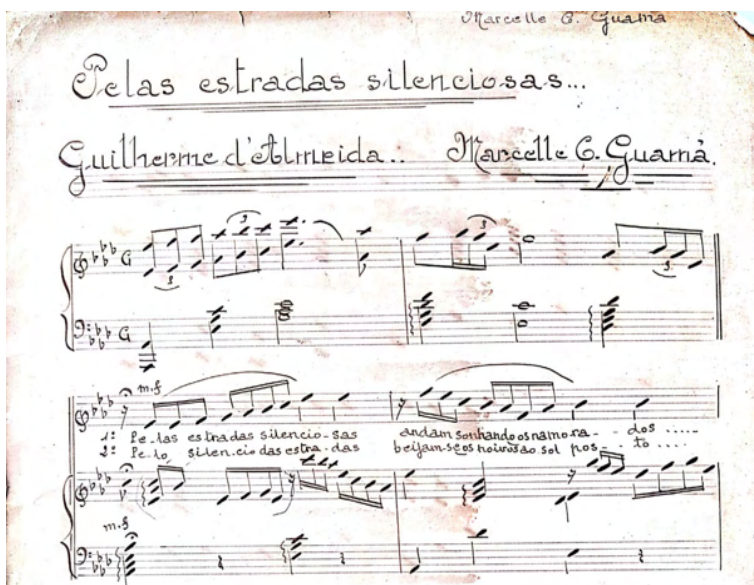 Marcelle C. Guamá
Pelas estradas silenciosas...
Guilherme d'Almeida.. Marcelle C. Guamá.
3 3 3 3
m.f
1ª Pe-las estradas silencio-sas andam sonhando os namora--dos .....
2ª Pe-lo silen-cio das estra-das beijam-se os noivos ao sol pos--to ....
m.f